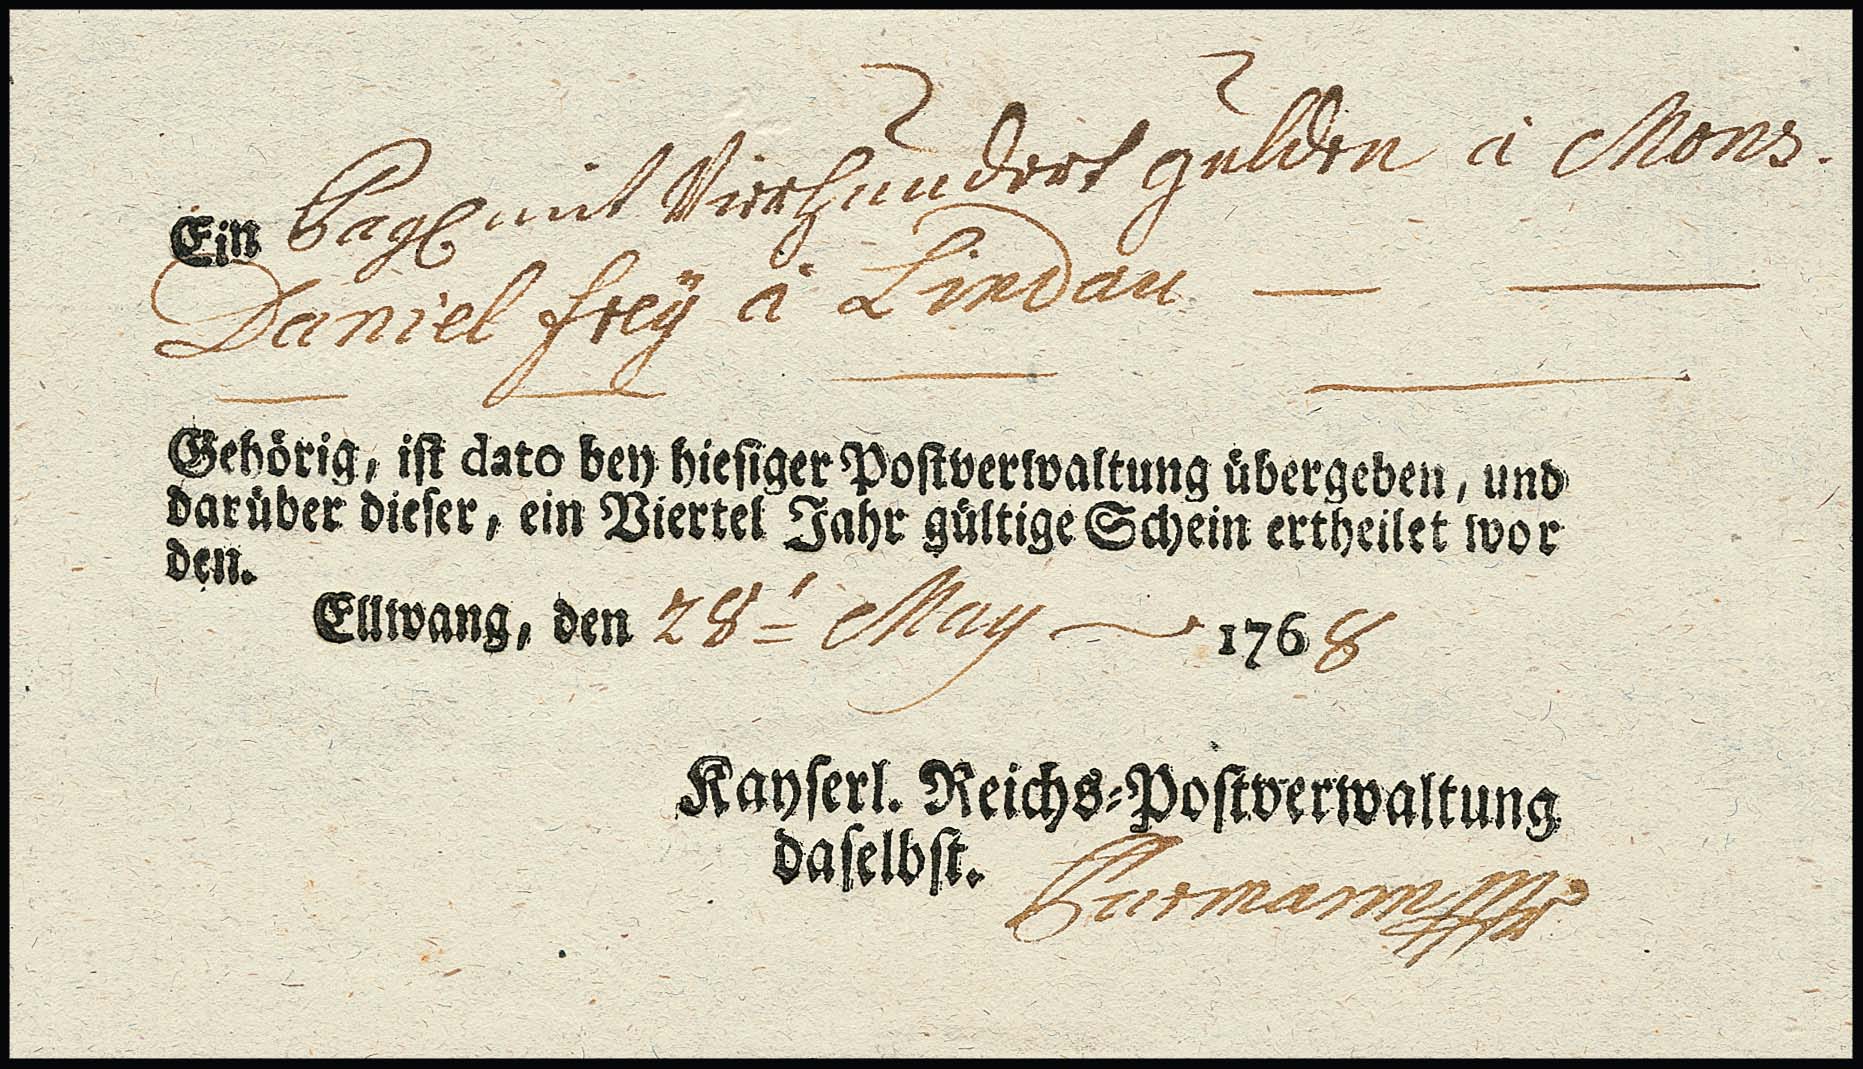 Ein Paqt mit Vierhundert gulden à Mons.
Daniel freÿ à Lindau
Gehörig, ist dato bey hiesiger Postverwaltung übergeben, und
darüber dieser, ein Viertel Jahr gültige Schein ertheilet wor
den.
Ellwang, den 28t May 1768
Kayserl. Reichs-Postverwaltung
daselbst.